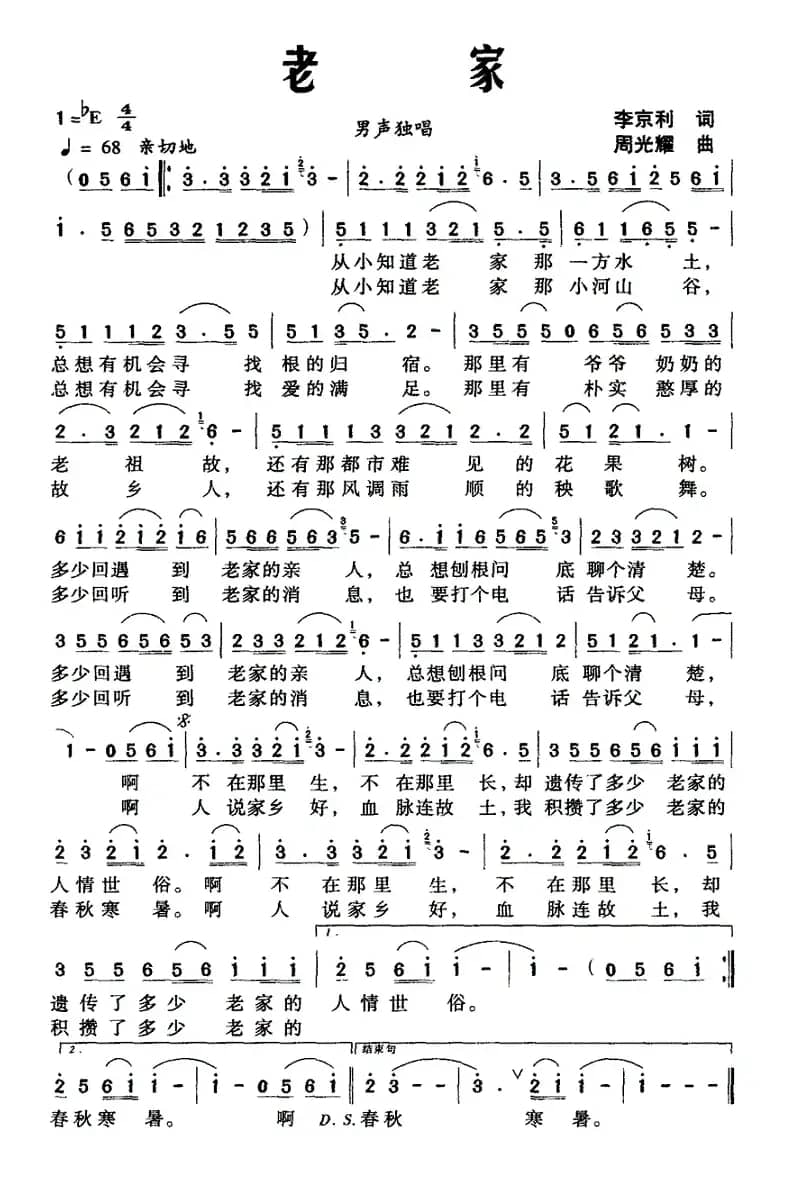 老 家
1=♭E 4/4
男声独唱
李京利 词
♩= 68 亲切地
周光耀 曲
(0 5 6 1 ‖: 3 . 3 3 2 1 3 - | 2 . 2 2 1 2 6 . 5 | 3 . 5 6 1 2 5 6 1
1 . 5 6 5 3 2 1 2 3 5 ) | 5 1 1 1 3 2 1 5 . 5 | 6 1 1 6 5 5 - |
从小知道老 家 那 一方水 土,
从小知道老 家 那 小河山 谷,
5 1 1 1 2 3 . 5 5 | 5 1 3 5 . 2 - | 3 5 5 5 0 6 5 6 5 3 3
总想有机会寻 找 根的归 宿。那里有 爷爷 奶奶的
总想有机会寻 找 爱的满 足。那里有 朴实 憨厚的
2 . 3 2 1 2 6 - | 5 1 1 1 3 3 2 1 2 . 2 | 5 1 2 1 . 1 -
老 祖 故, 还有那都市难 见 的 花 果 树。
故 乡 人, 还有那风调雨 顺 的 秧 歌 舞。
6 1 1 2 1 2 1 6 | 5 6 6 5 6 3 5 - | 6 . 1 1 6 5 6 5 3 | 2 3 3 2 1 2 -
多少回遇 到 老家的亲 人, 总 想刨根问 底 聊个清 楚。
多少回听 到 老家的消 息, 也 要打个电 话 告诉父 母。
3 5 5 6 5 6 5 3 | 2 3 3 2 1 2 6 - | 5 1 1 1 3 3 2 1 2 | 5 1 2 1 . 1 -
多少回遇 到 老家的亲 人,总想刨根问 底 聊个清 楚,
多少回听 到 老家的消 息,也要打个电 话 告诉父 母,
1 - 0 5 6 1 | 3 . 3 3 2 1 3 - | 2 . 2 2 1 2 6 . 5 | 3 5 5 6 5 6 1 1 1
啊 不 在那里 生, 不 在那里 长,却 遗传了多少 老家的
啊 人 说家乡 好, 血 脉连故 土,我 积攒了多少 老家的
2 3 2 1 2 . 1 | 2 1 5 6 1 | 3 . 3 3 2 1 3 - | 2 . 2 2 1 2 6 . 5
人情世 俗。啊 不 在那里 生, 不 在那里 长, 却
春秋寒 暑。啊 人 说家乡 好, 血 脉连故 土, 我
1.
3 5 5 6 5 6 1 1 1 | 2 5 6 1 1 - | 1 - ( 0 5 6 1 :‖
遗传了多少 老家的 人情世 俗。
积攒了多少 老家的
2. 结束句
2 5 6 1 1 - | 1 - 0 5 6 1 ‖ 2 - 3 . ∨ 2 1 | 1 - - - ‖
春秋寒 暑。 啊 D.S.春秋 寒 暑。